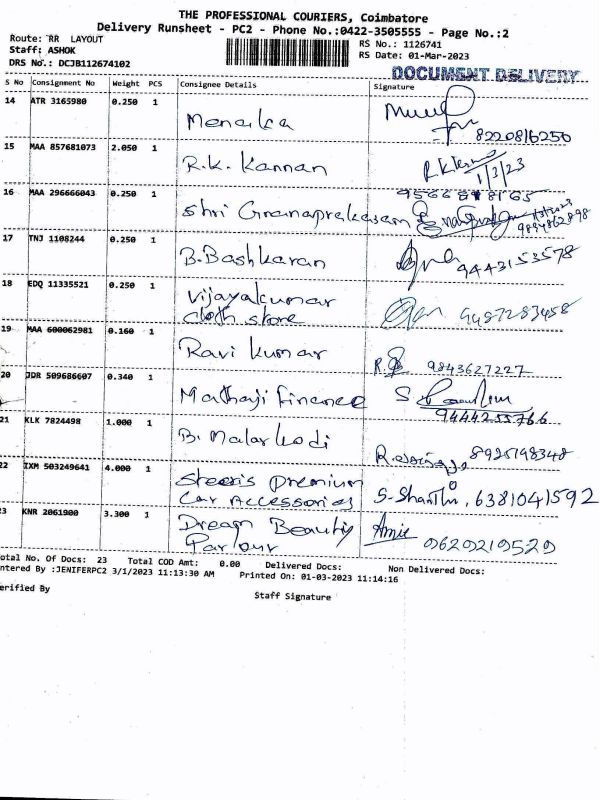 THE PROFESSIONAL COURIERS, Coimbatore
Delivery Runsheet - PC2 - Phone No.:0422-3505555 - Page No.:2
Route: RR LAYOUT
RS No.: 1126741
Staff: ASHOK
RS Date: 01-Mar-2023
DRS No.: DCJB112674102
DOCUMENT DELIVERY
S No Consignment No Weight PCS Consignee Details Signature
14 ATR 3165980 0.250 1 Menaka
8220816250
15 MAA 857681073 2.050 1 R.K. Kannan
1/3/23
9566898165
16 MAA 296666043 0.250 1 Shri Gnanaprakasam
9884862898
17 TNJ 1108244 0.250 1 B.Bashkaran 9443153578
18 EDQ 11335521 0.250 1 Vijayakumar
cloth store 9487283458
19 MAA 600062981 0.160 1 Ravi kumar
9843627227
20 JDR 509686607 0.340 1 Mathaji finance
9444255766
21 KLK 7824498 1.000 1 B. Malarkodi
8925198348
22 IXM 503249641 4.000 1 Steeris premium
Car Accessories S. Shanthi, 6381041592
23 KNR 2061900 3.300 1 Dream Beauty
Parlour 9629219529
otal No. Of Docs: 23 Total COD Amt: 0.00 Delivered Docs: Non Delivered Docs:
ntered By :JENIFERPC2 3/1/2023 11:13:30 AM Printed On: 01-03-2023 11:14:16
erified By
Staff Signature